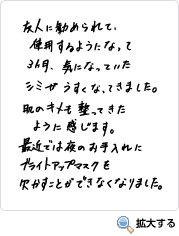 友人に勧められて、
使用するようになって
3ヵ月、気になっていた
シミがうすくなってきました。
肌のキメも整ってきた
ように感じます。
最近では夜のお手入れに
ブライトアップマスクを
欠かすことができなくなりました。
拡大する